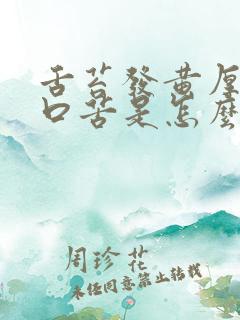 舌苔發黄厚
口苦是怎麼
周珍花
未经同意禁止转载